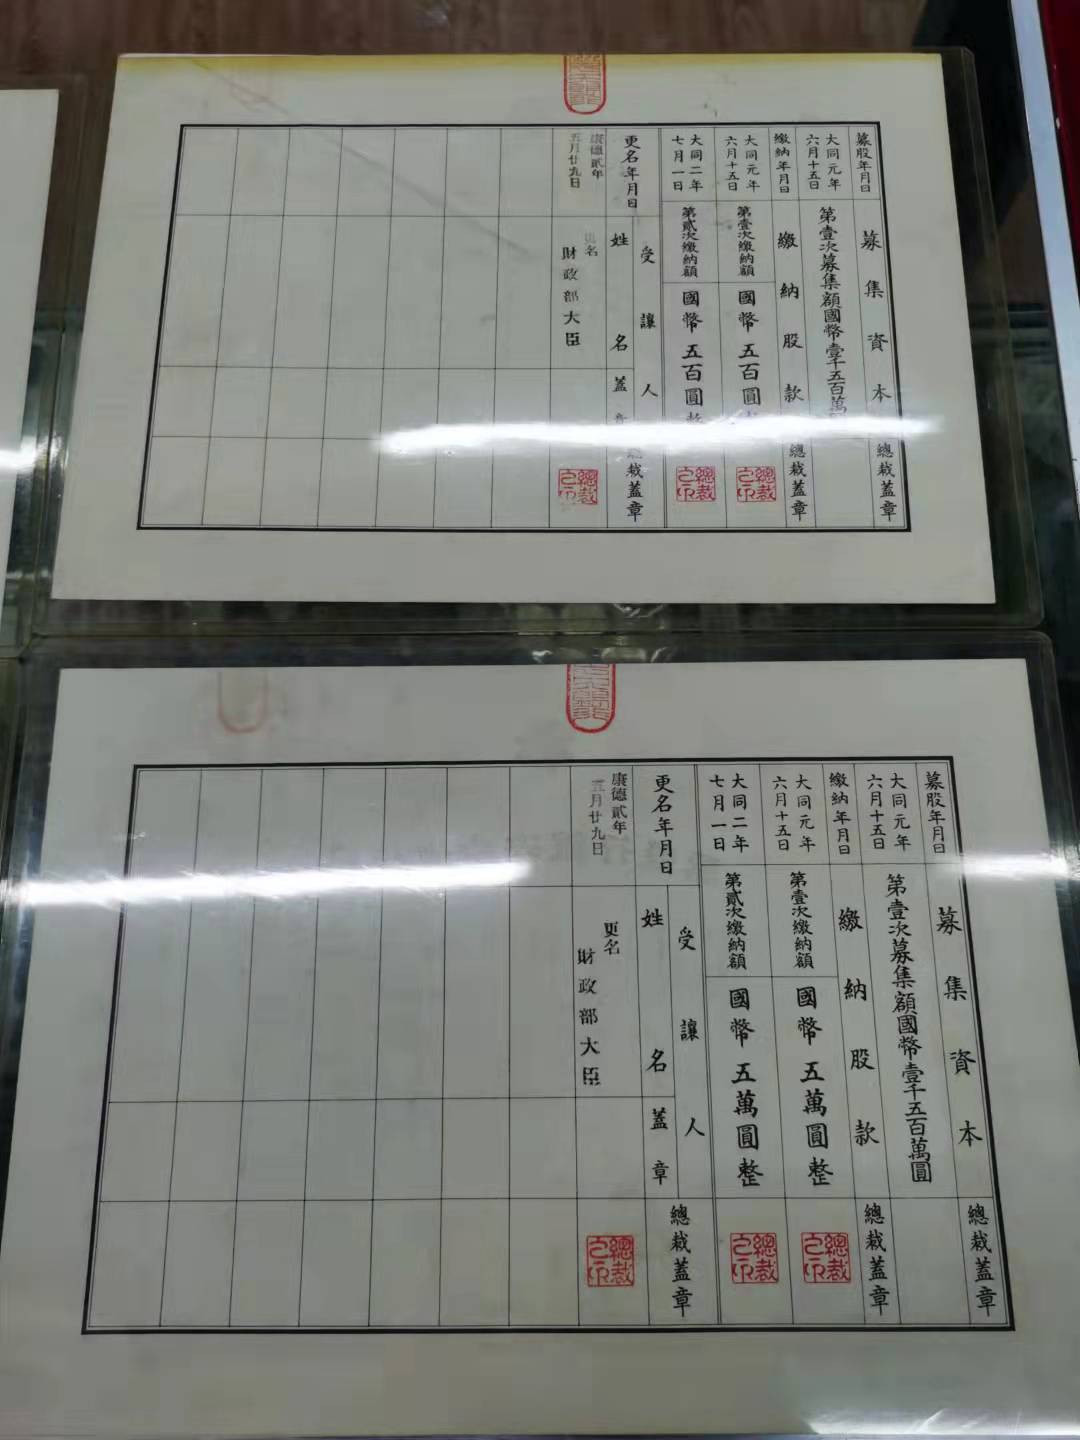 募股年月日
募集資本
總裁蓋章
大同元年
六月十五日
第壹次募集額國幣壹千五百萬
繳納年月日
繳納股款
總裁蓋章
大同元年
六月十五日
第壹次繳納額
國幣五百圓
總裁之印
大同二年
七月一日
第貳次繳納額
國幣五百圓
總裁之印
更名年月日
受讓人
姓名
蓋章
總裁蓋章
康德貳年
五月廿九日
更名
財政部大臣
總裁之印
募股年月日
募集資本
總裁蓋章
大同元年
六月十五日
第壹次募集額國幣壹千五百萬圓
繳納年月日
繳納股款
總裁蓋章
大同元年
六月十五日
第壹次繳納額
國幣五萬圓整
總裁之印
大同二年
七月一日
第貳次繳納額
國幣五萬圓整
總裁之印
更名年月日
受讓人
姓名
蓋章
總裁蓋章
康德貳年
五月廿九日
更名
財政部大臣
總裁之印